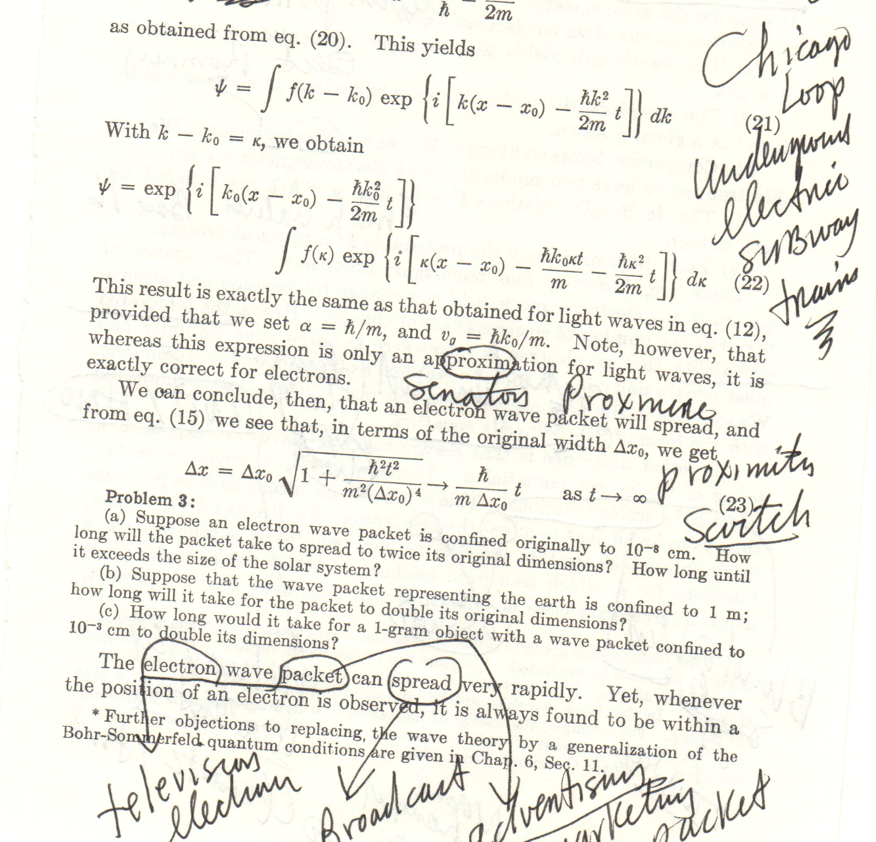 ħ 2m
as obtained from eq. (20). This yields
ψ = ∫ f(k − k₀) exp {i [k(x − x₀) − ħk²/2m t]} dk (21)
With k − k₀ = κ, we obtain
ψ = exp {i [k₀(x − x₀) − ħk₀²/2m t]}
∫ f(κ) exp {i [κ(x − x₀) − ħk₀κt/m − ħκ²/2m t]} dκ (22)
This result is exactly the same as that obtained for light waves in eq. (12),
provided that we set α = ħ/m, and v_g = ħk₀/m. Note, however, that
whereas this expression is only an approximation for light waves, it is
exactly correct for electrons.
We can conclude, then, that an electron wave packet will spread, and
from eq. (15) we see that, in terms of the original width Δx₀, we get
Δx = Δx₀ √(1 + ħ²t²/m²(Δx₀)⁴) → ħ/m Δx₀ t as t → ∞ (23)
Problem 3:
(a) Suppose an electron wave packet is confined originally to 10⁻⁸ cm. How
long will the packet take to spread to twice its original dimensions? How long until
it exceeds the size of the solar system?
(b) Suppose that the wave packet representing the earth is confined to 1 m;
how long will it take for the packet to double its original dimensions?
(c) How long would it take for a 1-gram object with a wave packet confined to
10⁻³ cm to double its dimensions?
The electron wave packet can spread very rapidly. Yet, whenever
the position of an electron is observed, it is always found to be within a
* Further objections to replacing the wave theory by a generalization of the
Bohr-Sommerfeld quantum conditions are given in Chap. 6, Sec. 11.
Chicago
Loop
Underground
electric
subway
trains
Senator Proxmire
proximity
Switch
television
election
Broadcast
advertising
marketing
packet